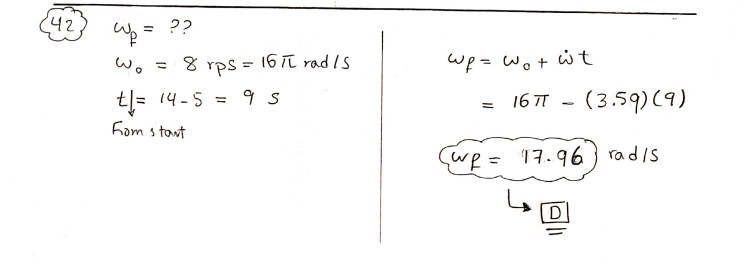 42
ω_f = ??
ω₀ = 8 rps = 16π rad/s
t = 14-5 = 9 s
From start
ω_f = ω₀ + ω̇t
= 16π - (3.59)(9)
ω_f = 17.96 rad/s
D